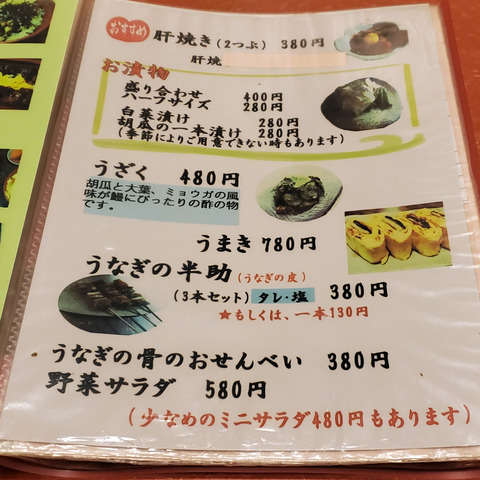 おすすめ
肝焼き(2つぶ) 380円
肝焼
お漬物
盛り合わせ 400円
ハーフサイズ 280円
白菜漬け 280円
胡瓜の一本漬け 280円
(季節によりご用意できない時もあります)
うざく 480円
胡瓜と大葉、ミョウガの風
味が鰻にぴったりの酢の物
です。
うまき 780円
うなぎの半助(うなぎの皮)
(3本セット) タレ・塩 380円
★もしくは、一本130円
うなぎの骨のおせんべい 380円
野菜サラダ 580円
(少なめのミニサラダ480円もあります)